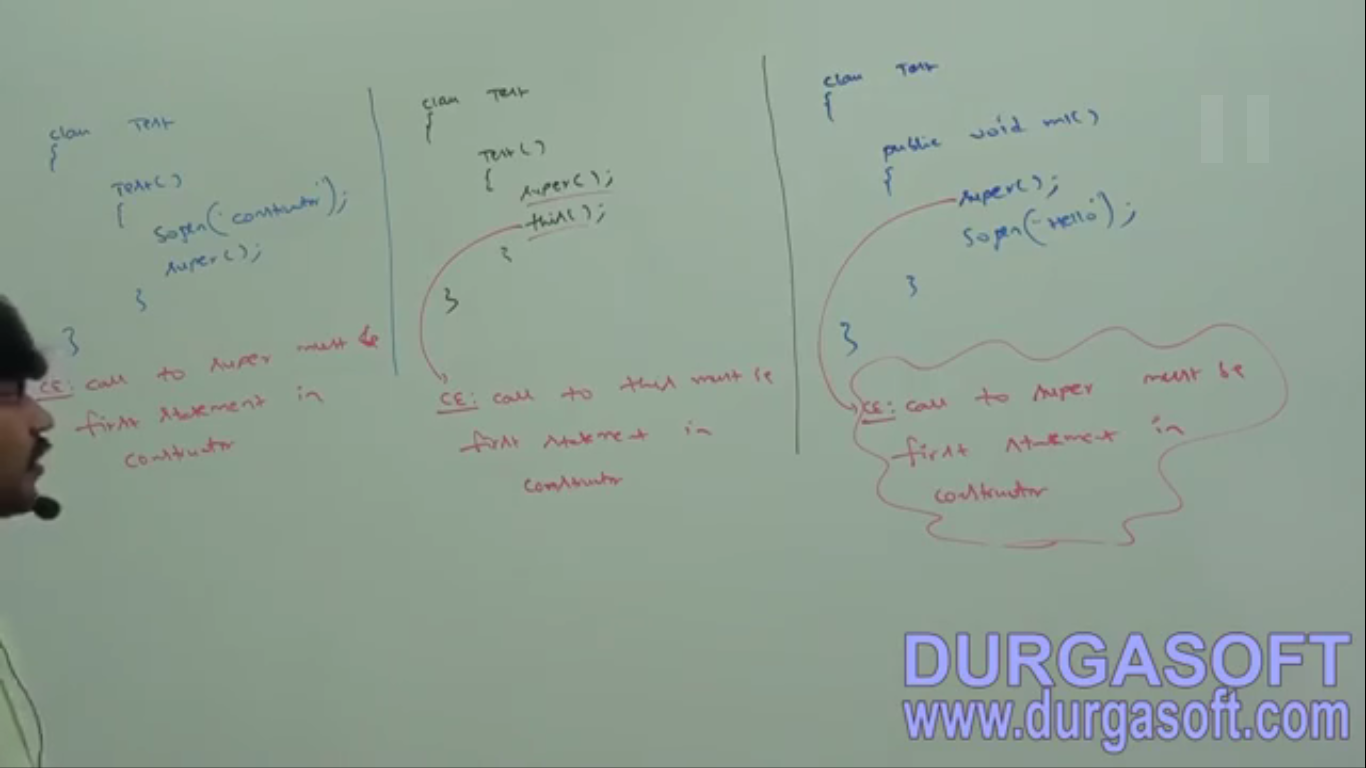 class Test
{
Test()
{
Sopln("constructor");
super();
}
}
CE: call to super must be
first statement in
constructor
class Test
{
Test()
{
super();
this();
}
}
CE: call to this must be
first statement in
constructor
class Test
{
public void m1()
{
super();
Sopln("Hello");
}
}
CE: call to super must be
first statement in
constructor
DURGASOFT
www.durgasoft.com